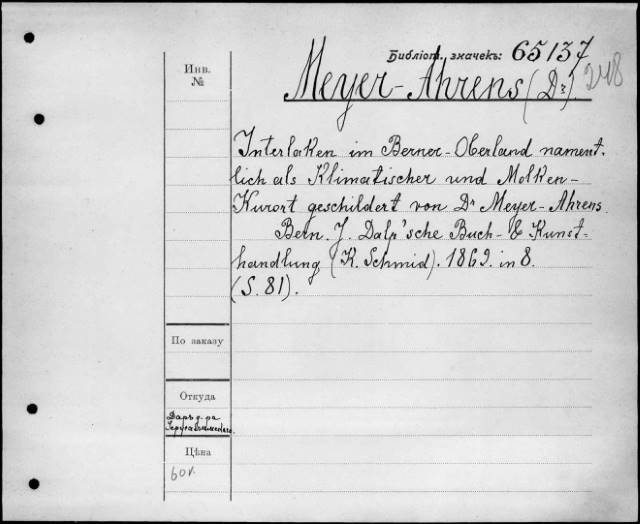 Библіот. значекъ: 65137
248
Инв.
№
Meyer-Ahrens (Dr).
Interlaken im Berner-Oberland nament-
lich als Klimatischer und Molken-
Kurort geschildert von Dr Meyer-Ahrens.
Bern. J. Dalp'sche Buch- & Kunst-
handlung (K. Schmid). 1869. in 8.
(S. 81).
По заказу
Откуда
Даръ д-ра
Цѣна
60к.